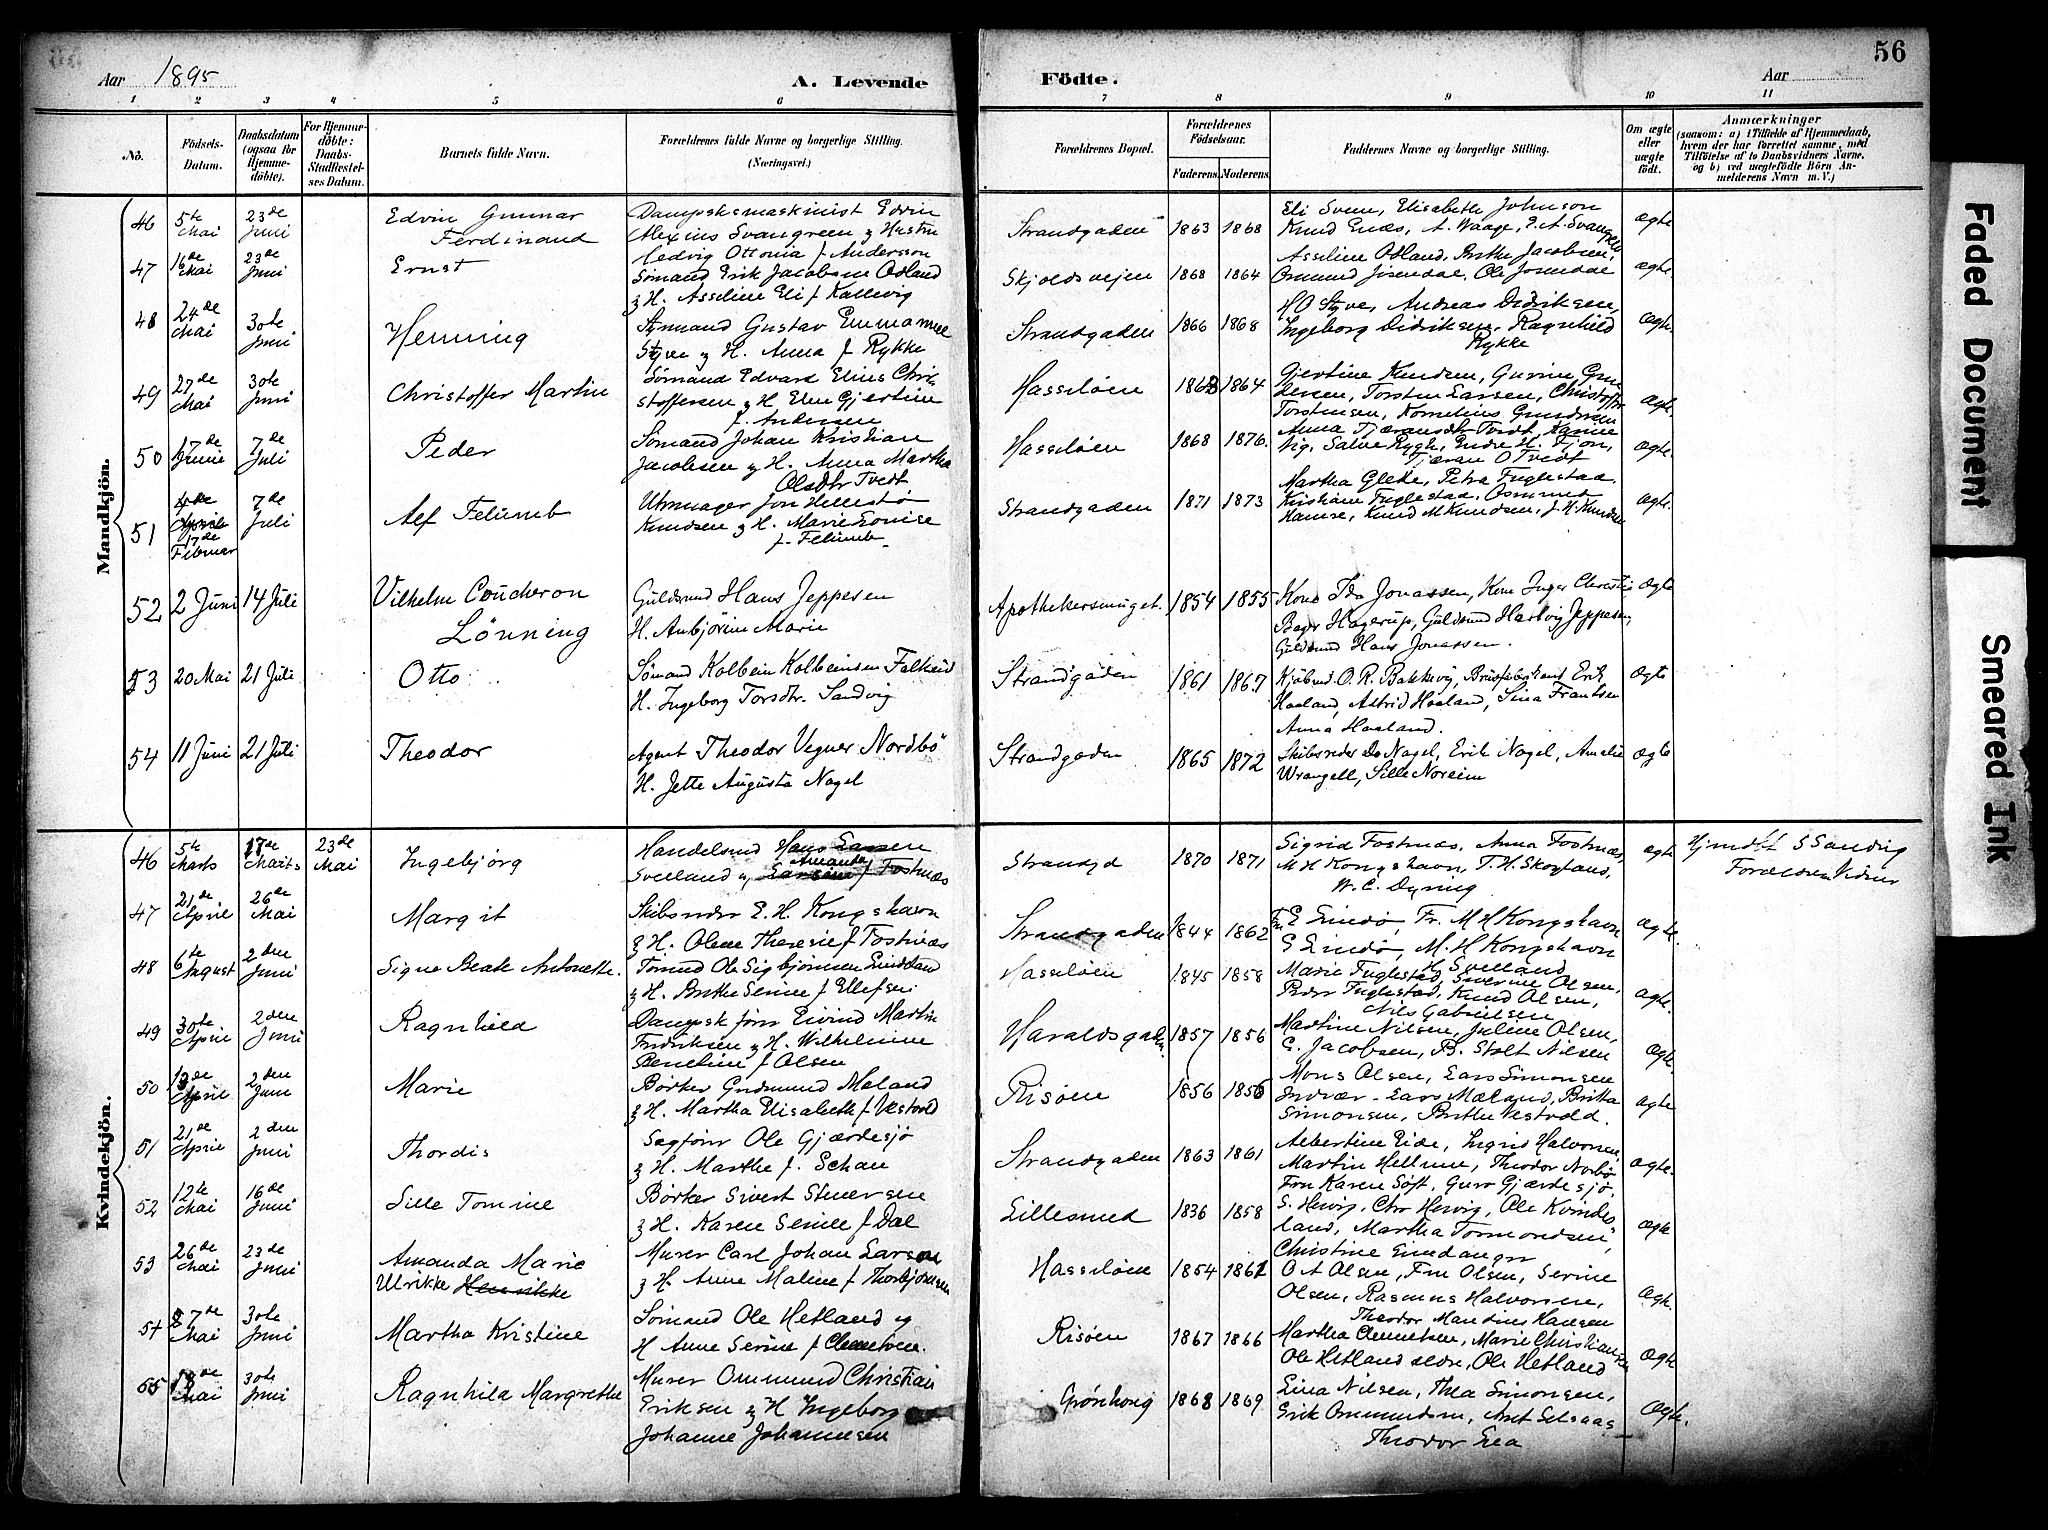 56
Aar 1895
A. Levende
Födte.
Aar
1 2 3 4 5 6 7 8 9 10 11
No.
Födsels-
Datum.
Daabsdatum
(ogsaa for
Hjemme-
döbte).
For Hjemme-
döbte:
Daabs-
Stadfæstel-
ses Datum.
Barnets fulde Navn.
Forældrenes fulde Navne og borgerlige Stilling.
(Næringsvei.)
Forældrenes Bopæl.
Forældrenes
Födselsaar.
Faderens. Moderens.
Faddernes Navne og borgerlige Stilling.
Om ægte
eller
uægte
födt.
Anmærkninger
(saasom: a) i Tilfælde af Hjemmedaab,
hvem der har forrettet samme, med
Tilföielse af to Daabsvidners Navne,
og b) ved uægtefödte Börn An-
melderens Navn m. V.)
Mandkjön.
46 5te Mai 23de Juni Edvin Gunnar Ferdinand
Dampskmaskinist Edvin
Alexius Svangreen og Hustru
Hedvig Ottonia f Andersson
Strandgaden 1863 1868
Eli Svein, Elisabeth Johnson
Knud Enæs, A. Waage, P. A. Svangren
Ægte
47 16de Mai 23de Juni Ernst
Sømand Erik Jacobsen Ødland
og H. Asseline Eli f Kallevig
Skjoldsvejen 1868 1864
Asseline Ødland, Berthe Jacobsen,
Ommund Jøsendal, Ole Jøsendal
Ægte
48 24de Mai 30te Juni Henning
Styrmand Gustav Emmanuel
Styve og H. Anna f Rykke
Strandgaden 1866 1868
H O Styve, Andreas Didriksen,
Ingeborg Didriksen, Ragnhild
Rykke
Ægte
49 27de Mai 30te Juni Christoffer Martin
Sømand Edvard Elius Chri-
stoffersen og H Elen Gjertine
f. Andersen
Hasseløen 1863 1864
Gjertine Knudsen, Gurine Gun
dersen, Torsten Larsen, Christoffer
Torstensen, Kornelius Gundersen
Ægte
50 17de Juni 7de Juli Peder
Sømand Johan Kristian
Jacobsen og H. Anna Martha
Olsdtr Tvedt
Hasseløen 1868 1876.
Anna Tjæransdtr Tvedt
Vig, Salve Rygh, Endre H. Fjon,
Tjæran O Tvedt
Ægte.
51 4de April 17de Februar 7de Juli Alf Felumb
Uhrmager Jon Hellestø
Knudsen og H. Marie Louise
f. Felumb
Strandgaden 1871 1873
Martha Glette, Petra Fuglestad
Kristiane Fuglestad, Osmund
Hamre, Knud M Knudsen, J. K. Knudsen
Ægte.
52 2 Juni 14 Juli Vilhelm Coucheron Lönning
Guldsmd Hans Jeppesen
H. Anbjörine Marie
Apothekersmuget. 1854 1855
Kone Ida Jonassen, Kone Inger Christie
Bager Hagerup, Guldsmd Hartvig Jeppesen,
Guldsmd Hans Jonassen.
Ægte
53 20 Mai 21 Juli Otto
Sömand Kolbein Kolbeinsen Falkeid
H. Ingeborg Torsdtr. Sandvig
Strandgaden 1861 1867
Kjöbmd. O. R. Bakkevig, Brusfabrikant Erik
Haaland, Astrid Haaland, Sina Frantsen
Anna Haaland.
Ægte
54 11 Juni 21 Juli Theodor
Agent Theodor Vegner Nordbö
H. Jette Augusta Nagel
Strandgaden 1865 1872
Skibsreder Do Nagel, Erik Nagel, Amalie
Wrangell, Sille Noreim
Ægte
Kvindekjön.
46 5te Marts 17de Marts 23de Mai Ingebjørg
Handelsmd Hans Larsen
Svelland og Larsine Amanda f Fostnæs
Strandgd 1870 1871
Sigrid Fostnæs, Anna Fostnæs,
M H Kongshavn, T. H. Skogland,
W. C. Dyring
Ægte
Hjmdøbt S Sandvig
Forældrene Vidner
47 21de April 26de Mai Margit
Skibsreder E. H. Kongshavn
og H. Olene Therese f Fostnæs
Strandgaden 1844 1862
Fru E Lindø, Fr. M H Kongshavn
G Lindø, M. H Kongshavn
H Svelland
Ægte.
48 6te August 2den Juni Signe Beate Antonette.
Tømmd Ole Sigbjørnsen Lindland
og H. Berthe Serine f Ellefsen
Hasseløen 1845 1858
Marie Fuglestad, Severine Olsen,
Peder Fuglestad, Knud Olsen,
Nils Gabrielsen
Ægte.
49 30te April 2den Juni Ragnhild
Dampsk fører Eivind Martin
Fredriksen og H. Wilhelmine
Benetine f Olsen
Haraldsgaden 1857 1856
Martine Nilsen, Juline Olsen,
G. Jacobsen, B. Stolt Nilsen
Ægte.
50 13de April 2den Juni Marie
Bødker Gudmund Mæland
og H. Martha Elisabeth f Vestvold
Risøen 1856 1856
Mons Olsen, Lars Simonsen
Indvær, Lars Mæland, Britta
Simonsen, Berthe Vestvold.
Ægte
51 21de April 2den Juni Thordis
Sagfører Ole Gjærdesjø
og H. Marthe f. Schau
Strandgaden 1863 1861
Albertine Eide, Ingrid Halvorsen,
Martin Hellune, Theodor Norbø
Fru Karen Søft, Guro Gjærdesjø,
Ægte.
52 12te Mai 16de Juni Sille Tomine
Bødker Sivert Stenersen
og H. Karen Serine f Dal
Lillesund 1836 1858
S. Hervig, Chr Hervig, Ole Kvindes-
land, Martha Tormondsen,
Christine Eiendanger
Ægte
53 26de Mai 23de Juni Amanda Marie
Ulrikke Henrikke
Murer Carl Johan Larsen
og H. Anne Maline f Thorbjørnsen
Hasseløen 1854 1861
O A Olsen, Fru Olsen, Serine
Olsen, Rasmus Halvorsen,
Theodor Mandius Hansen
Ægte.
54 7de Mai 30te Juni Martha Kristine
Sømand Ole Hetland og
H Anne Serine f Clemetsen.
Risøen 1867 1866
Martha Clemetsen, Marie Christiansen
Ole Hetland ældre, Ole Hetland
Ægte
55 18de Mai 30te Juni Ragnhild Margrethe
Murer Ommund Christian
Eriksen og H Ingeborg
Johanne Johannesen
Grønhoug 1868 1869
Lina Nilsen, Thea Simonsen,
Erik Ommundsen, Anst Selsaas
Theodor Lea
Ægte.
Faded Document
Smeared Ink